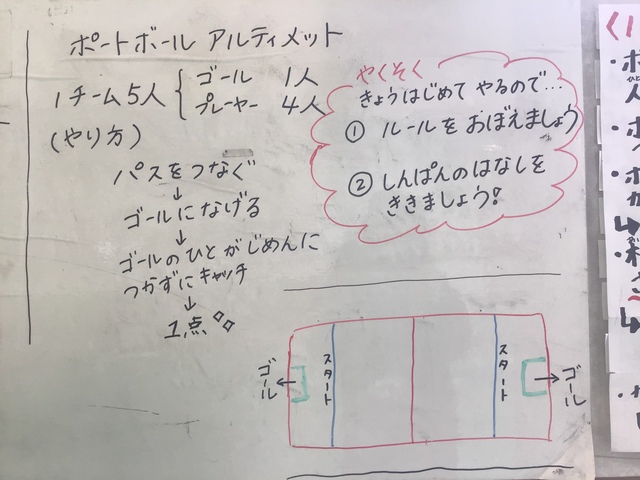 ポートボール アルティメット
1チーム5人 { ゴール 1人
プレーヤー 4人
(やり方)
パスをつなぐ
↓
ゴールになげる
↓
ゴールのひとがじめんに
つかずにキャッチ
↓
1点
やくそく
きょうはじめて やるので…
① ルールを おぼえましょう
② しんぱんのはなしを
ききましょう!
ゴール ←
スタート
スタート
→ ゴール